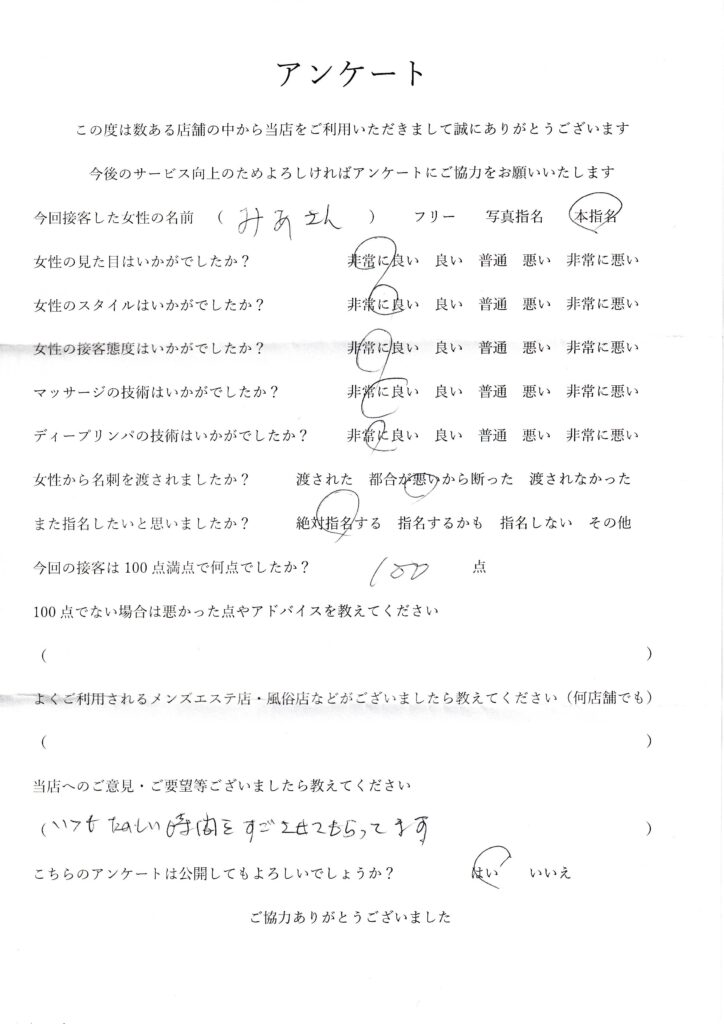 アンケート
この度は数ある店舗の中から当店をご利用いただきまして誠にありがとうございます
今後のサービス向上のためよろしければアンケートにご協力をお願いいたします
今回接客した女性の名前 ( みあさん ) フリー 写真指名 本指名
女性の見た目はいかがでしたか? 非常に良い 良い 普通 悪い 非常に悪い
女性のスタイルはいかがでしたか? 非常に良い 良い 普通 悪い 非常に悪い
女性の接客態度はいかがでしたか? 非常に良い 良い 普通 悪い 非常に悪い
マッサージの技術はいかがでしたか? 非常に良い 良い 普通 悪い 非常に悪い
ディープリンパの技術はいかがでしたか? 非常に良い 良い 普通 悪い 非常に悪い
女性から名刺を渡されましたか? 渡された 都合が悪いから断った 渡されなかった
また指名したいと思いましたか? 絶対指名する 指名するかも 指名しない その他
今回の接客は100点満点で何点でしたか? 100 点
100点でない場合は悪かった点やアドバイスを教えてください
( )
よくご利用されるメンズエステ店・風俗店などがございましたら教えてください(何店舗でも)
( )
当店へのご意見・ご要望等ございましたら教えてください
(いつもたのしい時間をすごさせてもらってます )
こちらのアンケートは公開してもよろしいでしょうか? はい いいえ
ご協力ありがとうございました